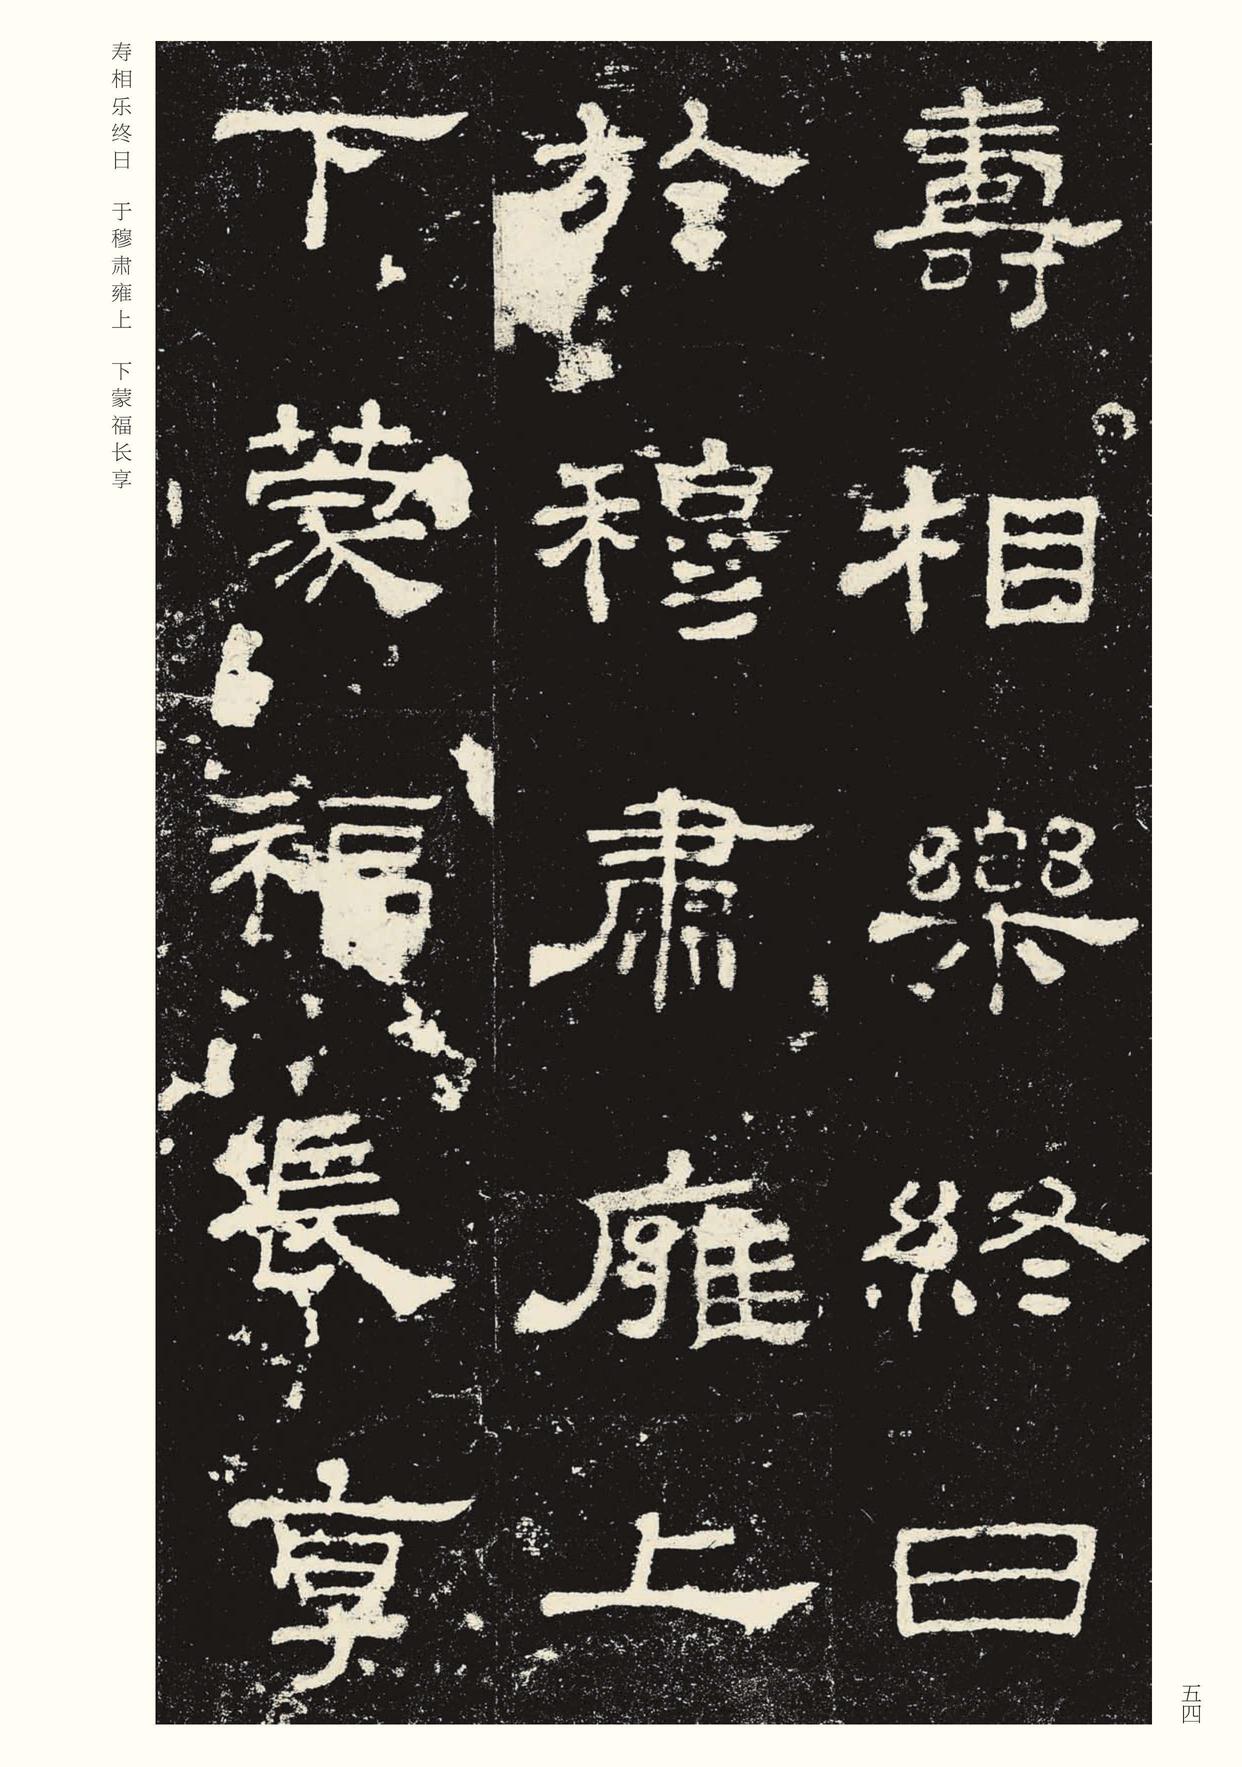 壽相樂終日
於穆肅雍上
下蒙福長享
寿相乐终日　于穆肃雍上　下蒙福长享
五四